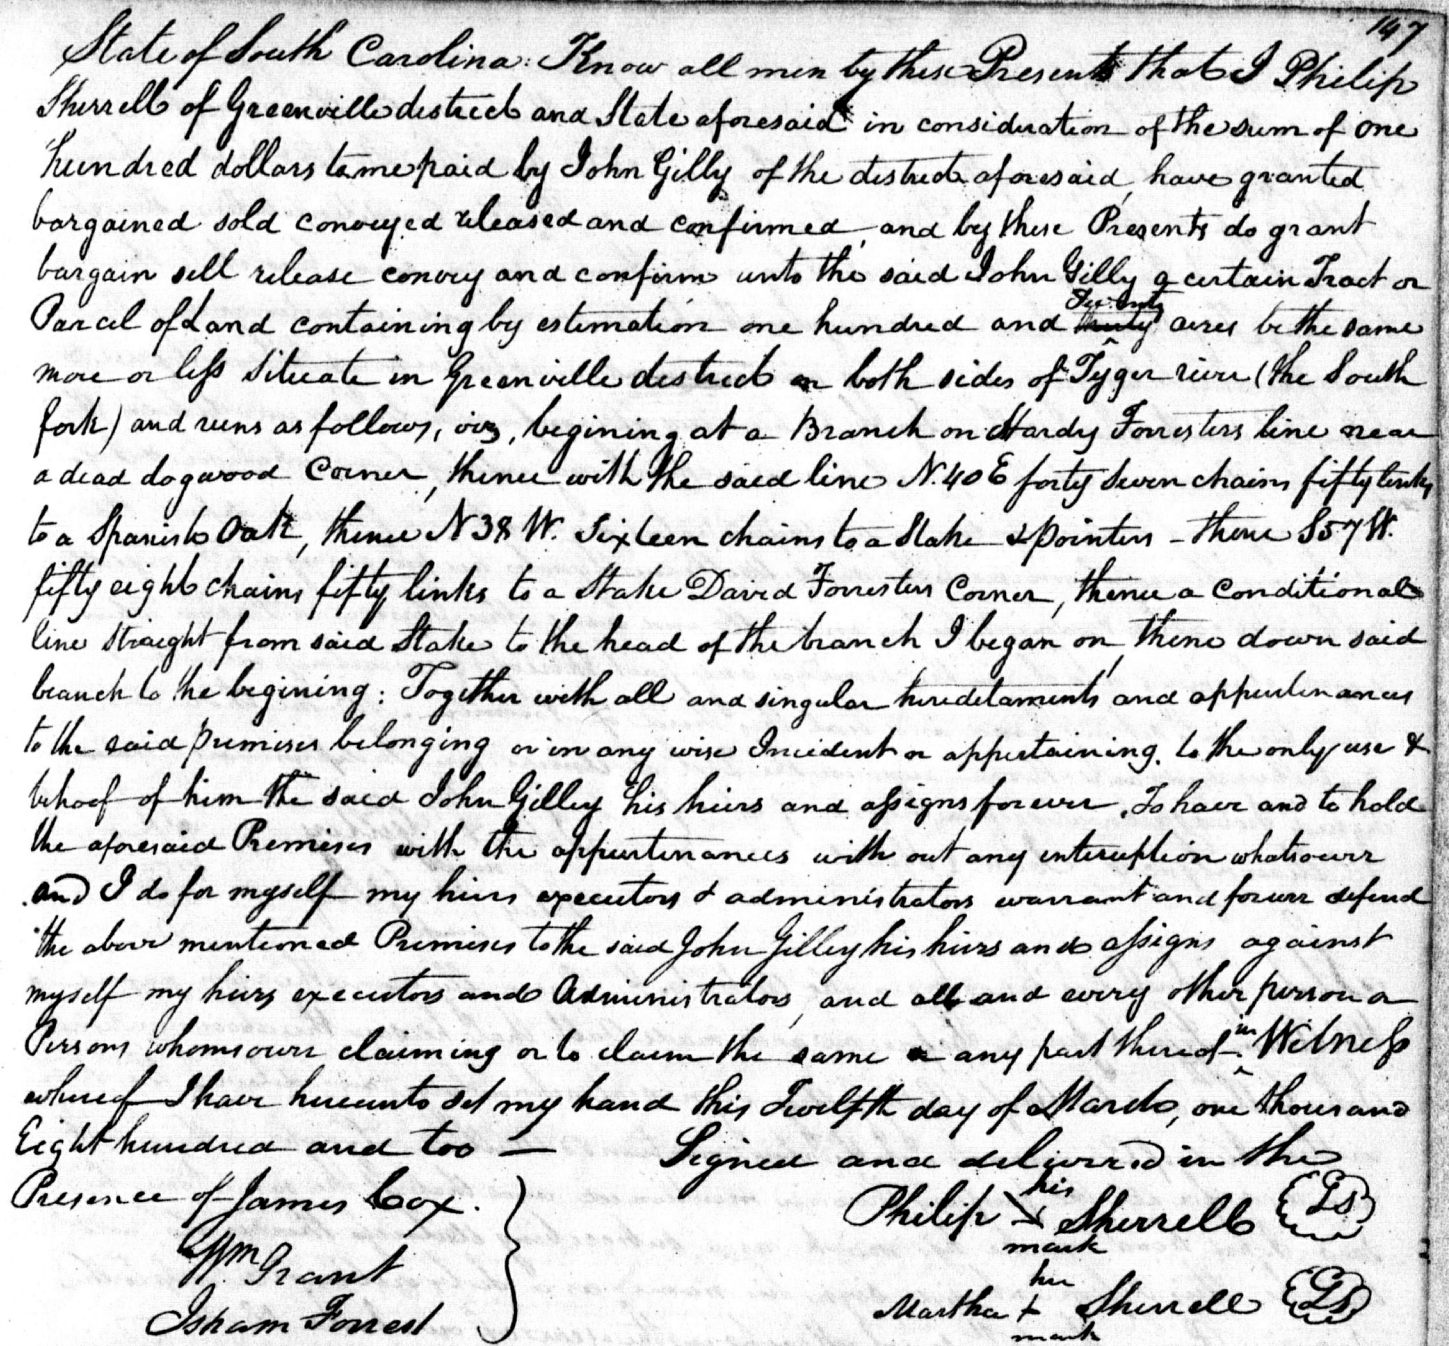 147
State of South Carolina: Know all men by these Presents that I Philip
Sherrell of Greenville district and State aforesaid in consideration of the sum of one
hundred dollars to me paid by John Gilly of the district aforesaid, have granted
bargained sold conveyed released and confirmed, and by these Presents do grant
bargain sell release convey and confirm unto the said John Gilly a certain Tract or
Twenty
Parcel of Land containing by estimation one hundred and acres be the same
more or less Situate in Greenville district on both sides of Tyger river (the South
fork) and runs as follows, viz, begining at a Branch on Hardy Forresters line near
a dead dogwood Corner, thence with the said line N.40 E forty Seven chains fifty links
to a Spanish Oak, thence N 38 W. Sixteen chains to a Stake & pointers - thence S57W.
fifty eight chains fifty links to a Stake David Forresters Corner, thence a Conditional
line straight from said Stake to the head of the branch I began on, thence down said
branch to the begining: Together with all and singular hereditaments and appurtenances
to the said premises belonging or in any wise Incident or appertaining. to the only use &
behoof of him the said John Gilley his heirs and assigns forever. To have and to hold
the aforesaid Premises with the appurtenances with out any interuption whatsoever
and I do for myself my heirs executors & administrators warrant and forever defend
the above mentioned Premises to the said John Gilley his heirs and assigns against
myself my heirs executors and Administrators, and all and every other person or
Persons whomsoever claiming or to claim the same or any part thereof. in Witness
whereof I have hereunto set my hand this Twelfth day of March, one thousand
Eight hundred and too — Signed and delivered in the
Presence of James Cox.
Wm Grant
Isham Forrest
his
Philip x Sherrell Ls
mark
her
Martha + Sherrell Ls
mark